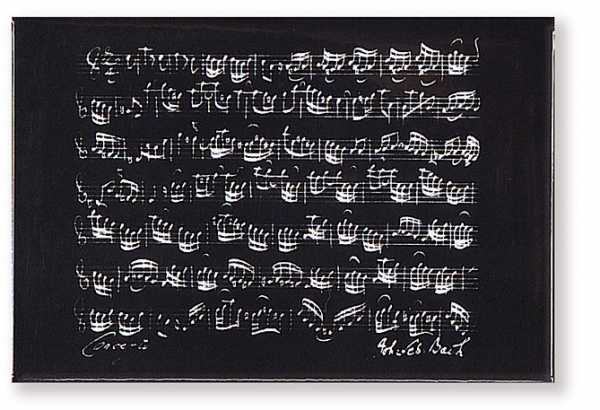 Concerto Joh. Seb. Bach